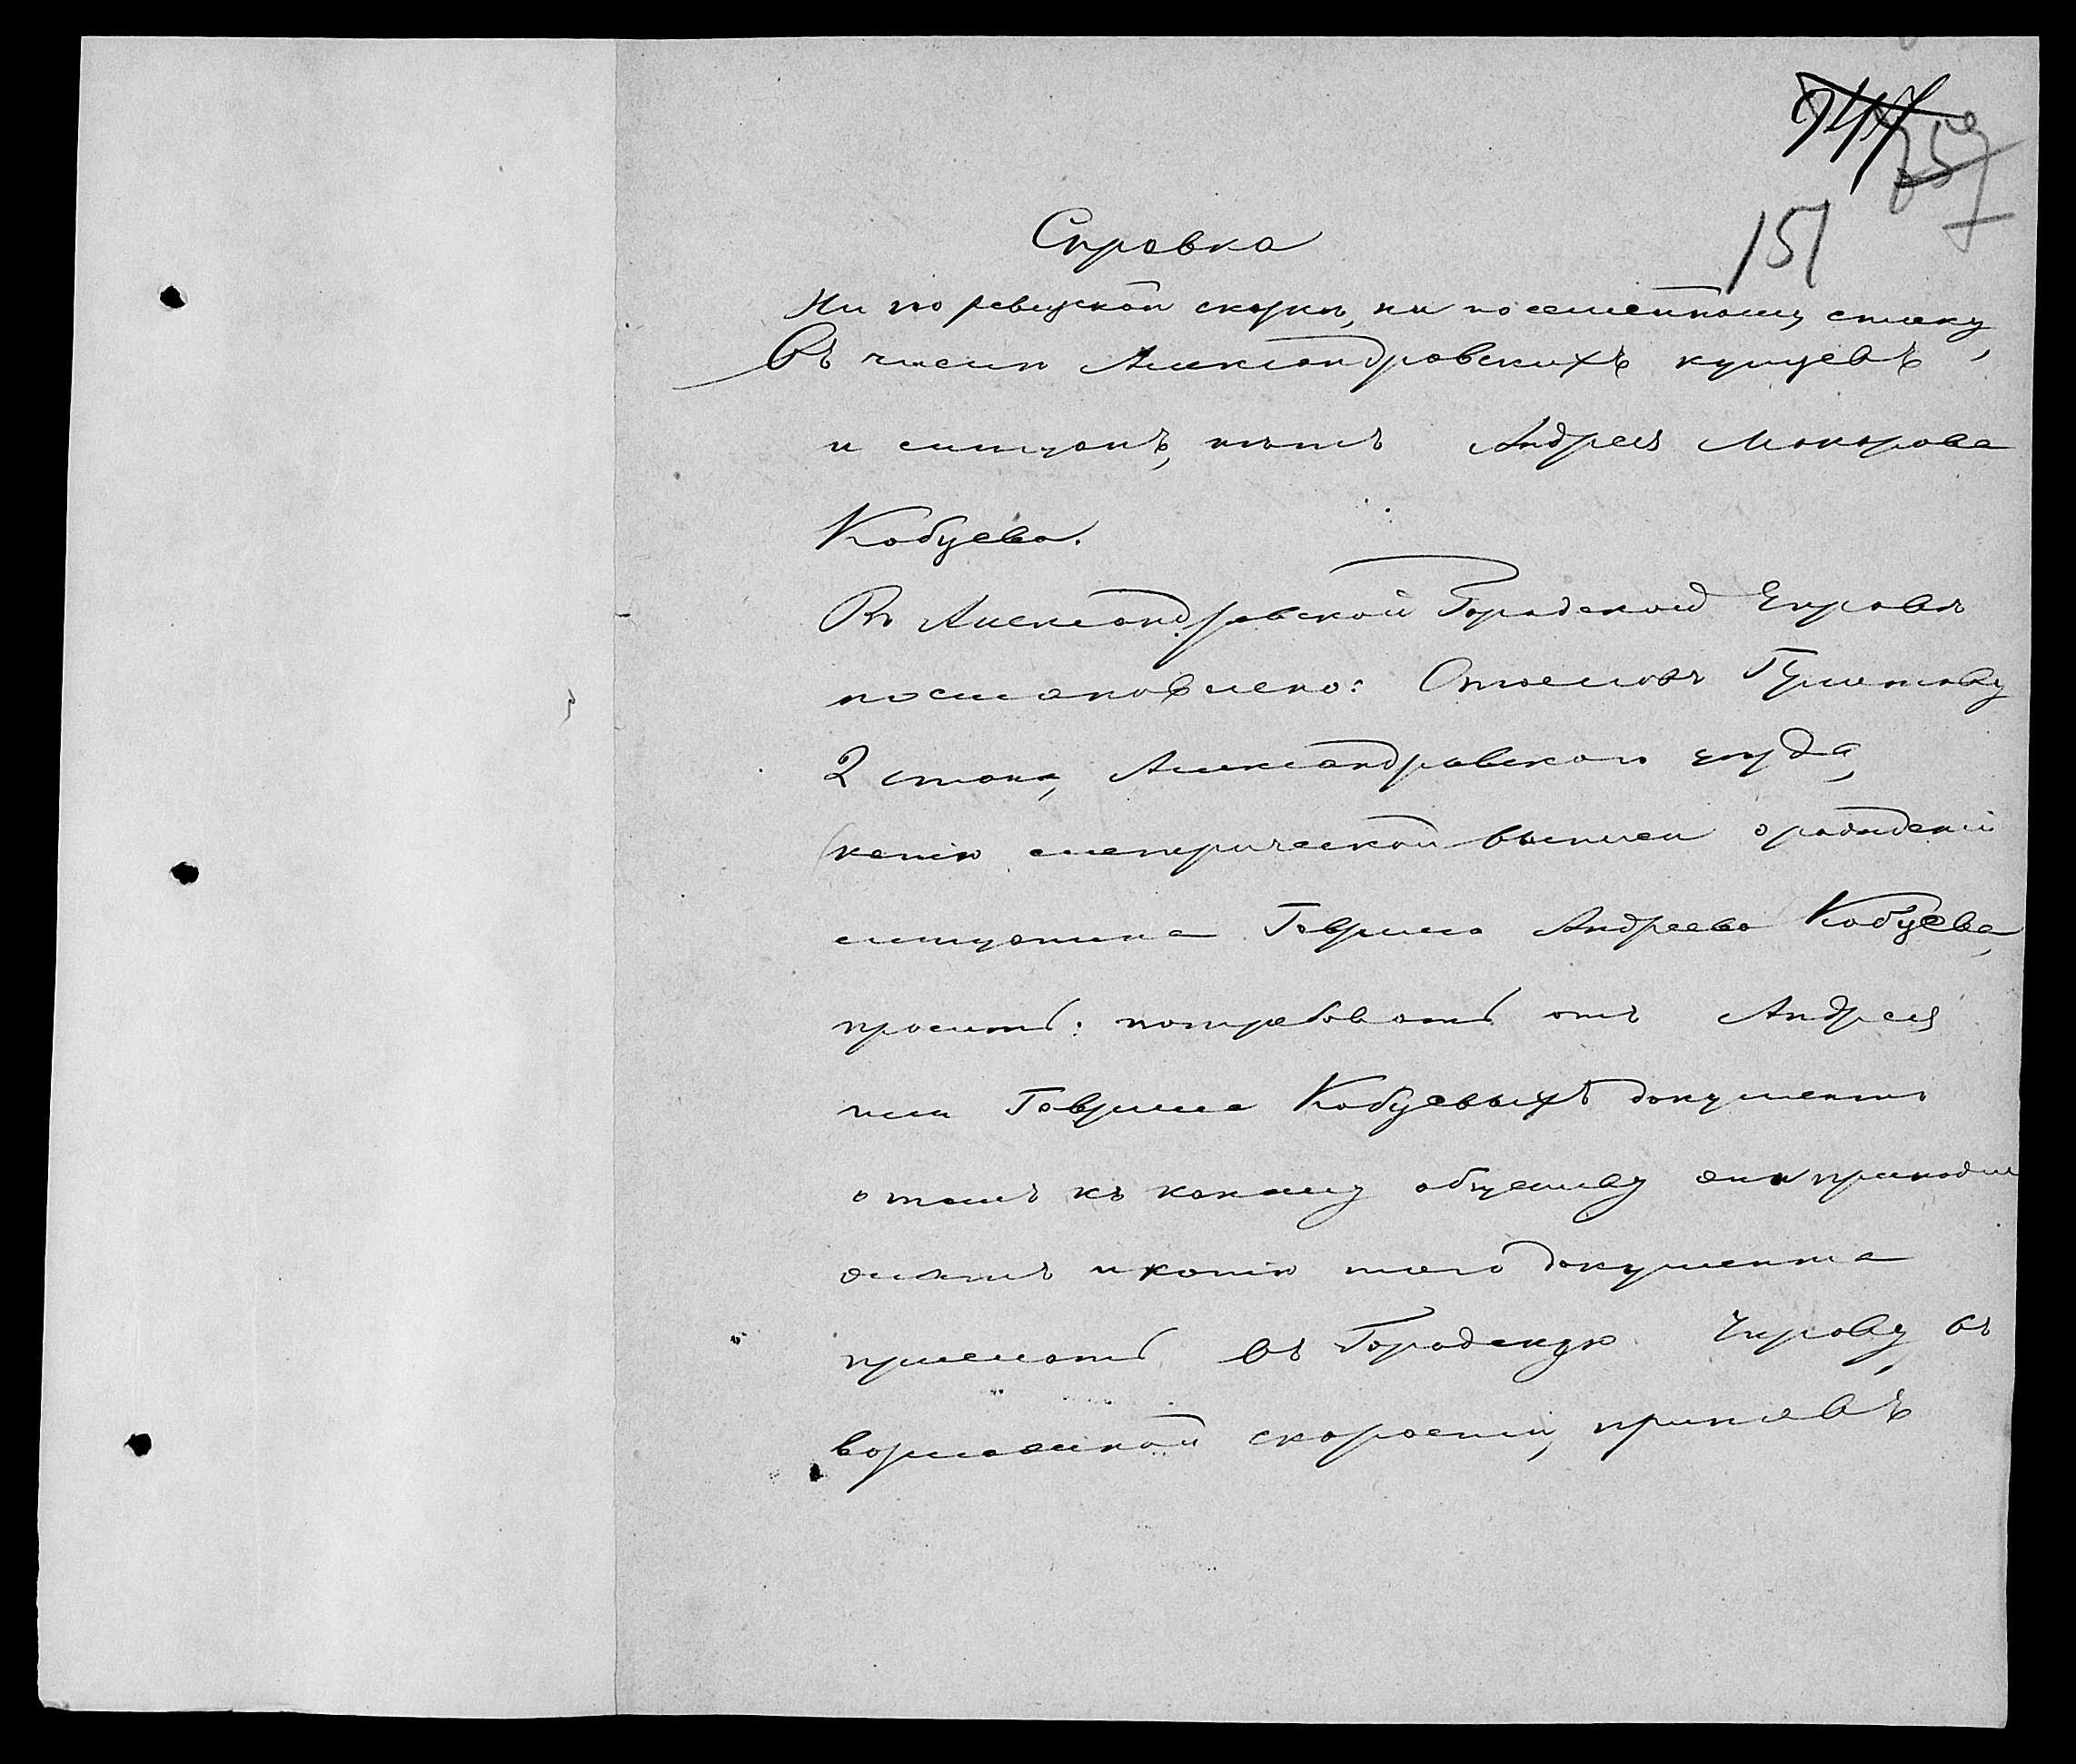 151
Справка
Ни по ревизской сказкѣ, ни по семейному списку,
Въ числѣ Александровскихъ купцевъ
и мѣщанъ, нѣтъ Андрея Макарова
Кобцева.
Въ Александровской Городской Управѣ
постановлено: Отославъ Приставу
2 стана, Александровскаго уѣзда,
копію метрической выписи о рожденіи
мѣщанина Гавріила Андреева Кобцева,
просить: потребовать отъ Андрея
или Гавріила Кобцевыхъ документъ
о томъ къ какому обществу они
и копію того документа
прислать въ Городскую Управу, въ
возможной скорости, принявъ